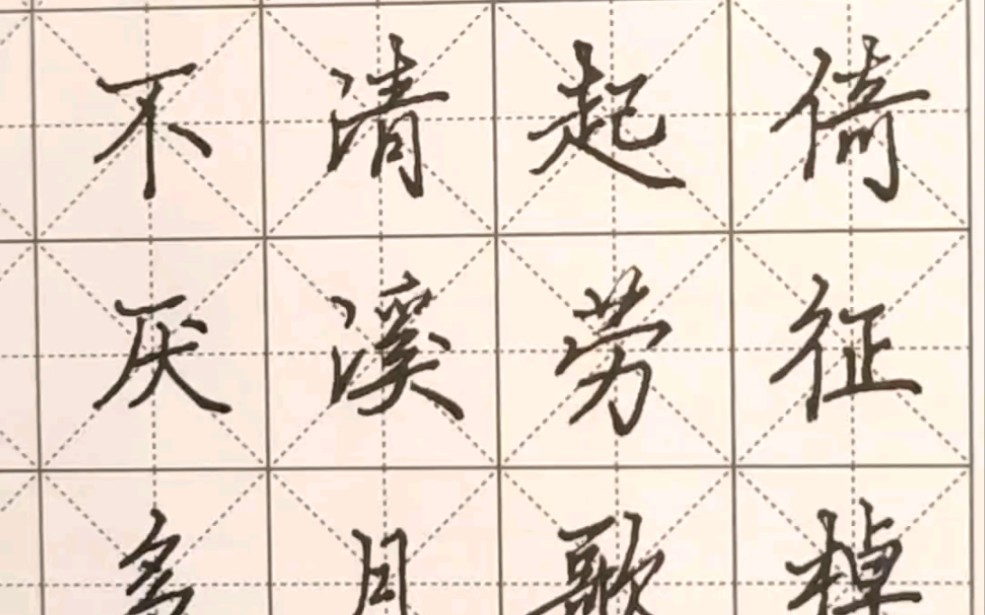 倚征棹
起劳歌
清溪月
不厌多